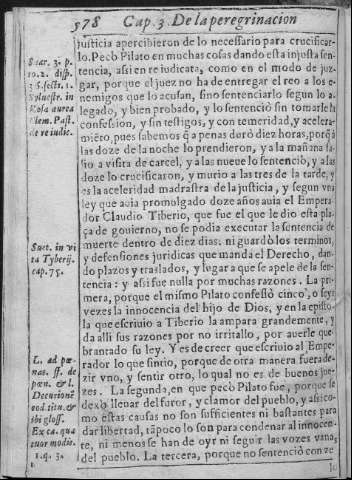 578 Cap. 3. De la peregrinacion
justicia apercibieron de lo necessario para crucificar-
lo. Pecò Pilato en muchas cosas dando esta injusta sen-
tencia, assi en re iudicata, como en el modo de juz-
gar, porque el juez no ha de entregar el reo a los e-
nemigos que lo acusan, sino sentenciarlo segun lo a-
legado, y bien probado, y lo sentenciò sin tomarle la
confession, y sin testigos, y con temeridad, y acelera-
miẽto, pues sabemos q̃ a penas darò diez horas, porq̃ à
las doze de la noche lo prendieron, y a la mañana sa-
lio a visita de carcel, y a las nueue lo sentenciò, y a las
doze lo crucificaron, y murio a las tres de la tarde, y
es la aceleridad madrastra de la justicia, y segun vna
ley que auia promulgado doze años auia el Empera-
dor Claudio Tiberio, que fue el que le dio esta pla-
ça de gouierno, no se podia executar la sentencia de
muerte dentro de diez dias: ni guardò los terminos,
y defensiones juridicas que manda el Derecho, dan-
do plazos y traslados, y lugar a que se apele de la sen-
tencia: y assi fue nulla por muchas razones. La pri-
mera, porque el mismo Pilato confessò cinco, o seys
vezes la innocencia del hijo de Dios, y en la episto-
la que escriuio a Tiberio la ampara grandemente, y
da alli sus razones por no irritallo, por auerle que-
brantado su ley. Y es de creer que escriuio al Empe-
rador lo que sintio, porque de otra manera fuera de-
zir vno, y sentir otro, lo qual no es de buenos jue-
zes. La segunda, en que pecò Pilato fue, porque se
dexò lleuar del furor, y clamor del pueblo, y assi co-
mo estas causas no son sufficientes ni bastantes para
dar libertad, tãpoco lo son para condenar al innocen-
te, ni menos se han de oyr ni seguir las vozes vanas
del pueblo. La tercera, porque no sentenciò con ze
Suar. 3. p.
10. 2. disp.
sect. 1.
Syluestr. in
Rosa aurea
Clem. Past.
de re iudic.
Suet. in vi
ta Tyberij.
cap. 75.
L. ad pœ-
nas. ff. de
pœn. & l.
Decurione
eod. tit. & 
ibi gloss.
Ex ca. qua
tuor modis.
1. q. 3.